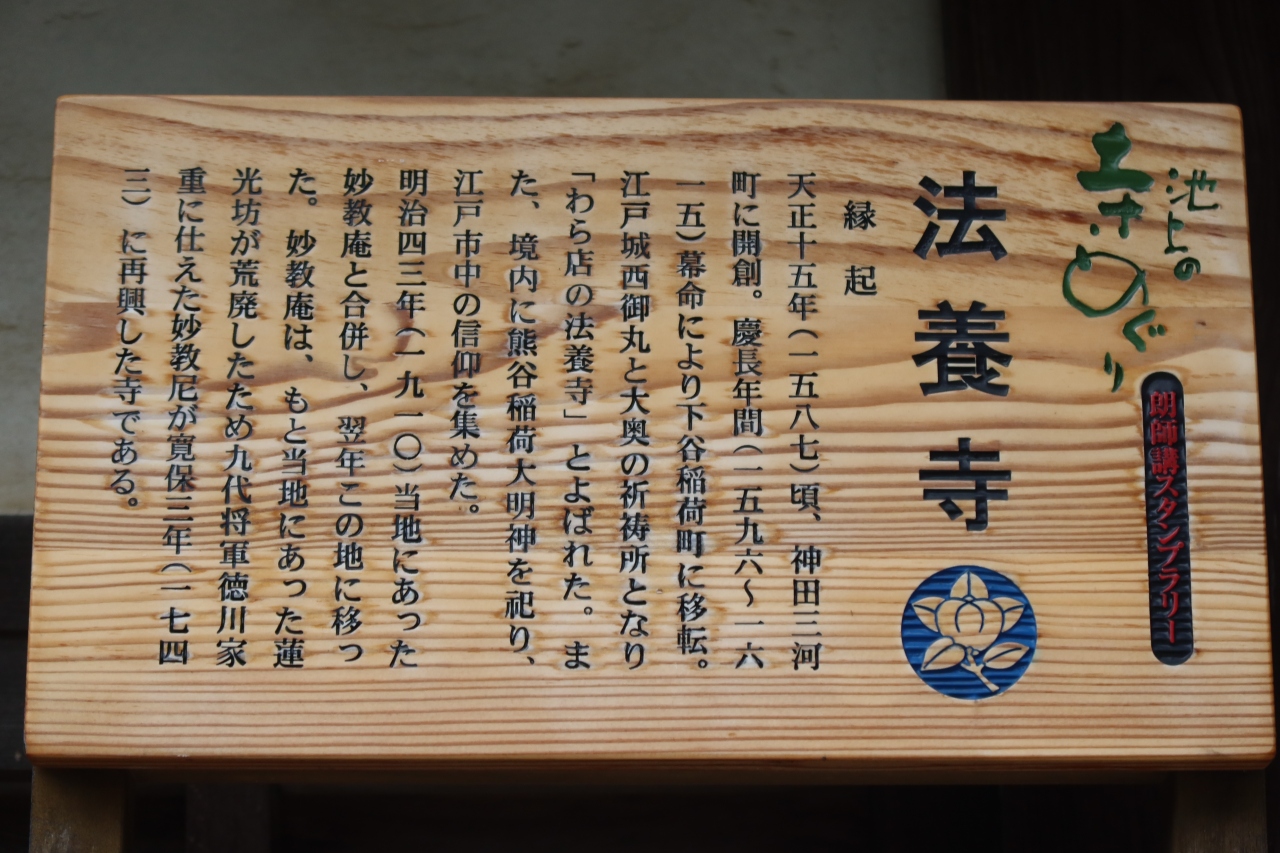 池上の
まちめぐり
朗師講スタンプラリー
法養寺
縁起
天正十五年(一五八七)頃、神田三河
町に開創。慶長年間(一五九六〜一六
一五)幕命により下谷稲荷町に移転。
江戸城西御丸と大奥の祈祷所となり
「わら店の法養寺」とよばれた。ま
た、境内に熊谷稲荷大明神を祀り、
江戸市中の信仰を集めた。
明治四三年(一九一〇)当地にあった
妙教庵と合併し、翌年この地に移っ
た。妙教庵は、もと当地にあった蓮
光坊が荒廃したため九代将軍徳川家
重に仕えた妙教尼が寛保三年(一七四
三)に再興した寺である。